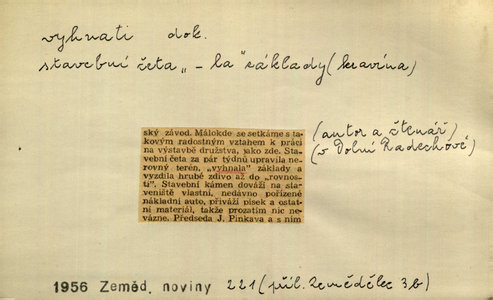 vyhnati dok.
stavební četa „ – la" základy (kravína)
(autor a čtenář)
(v Dolní Radechové)
ský závod. Málokde se setkáme s ta-
kovým radostným vztahem k práci
na výstavbě družstva, jako zde. Sta-
vební četa za pár týdnů upravila ne-
rovný terén, „vyhnala" základy a
vyzdila hrubé zdivo až do „rovnos-
ti". Stavební kámen dováží na sta-
veniště vlastní, nedávno pořízené
nákladní auto, přiváží písek a ostat-
ní materiál, takže prozatím nic ne-
vázne. Předseda J. Pinkava a s ním
1956 Zeměd. noviny 221 (příl. Zemědělec 3b)